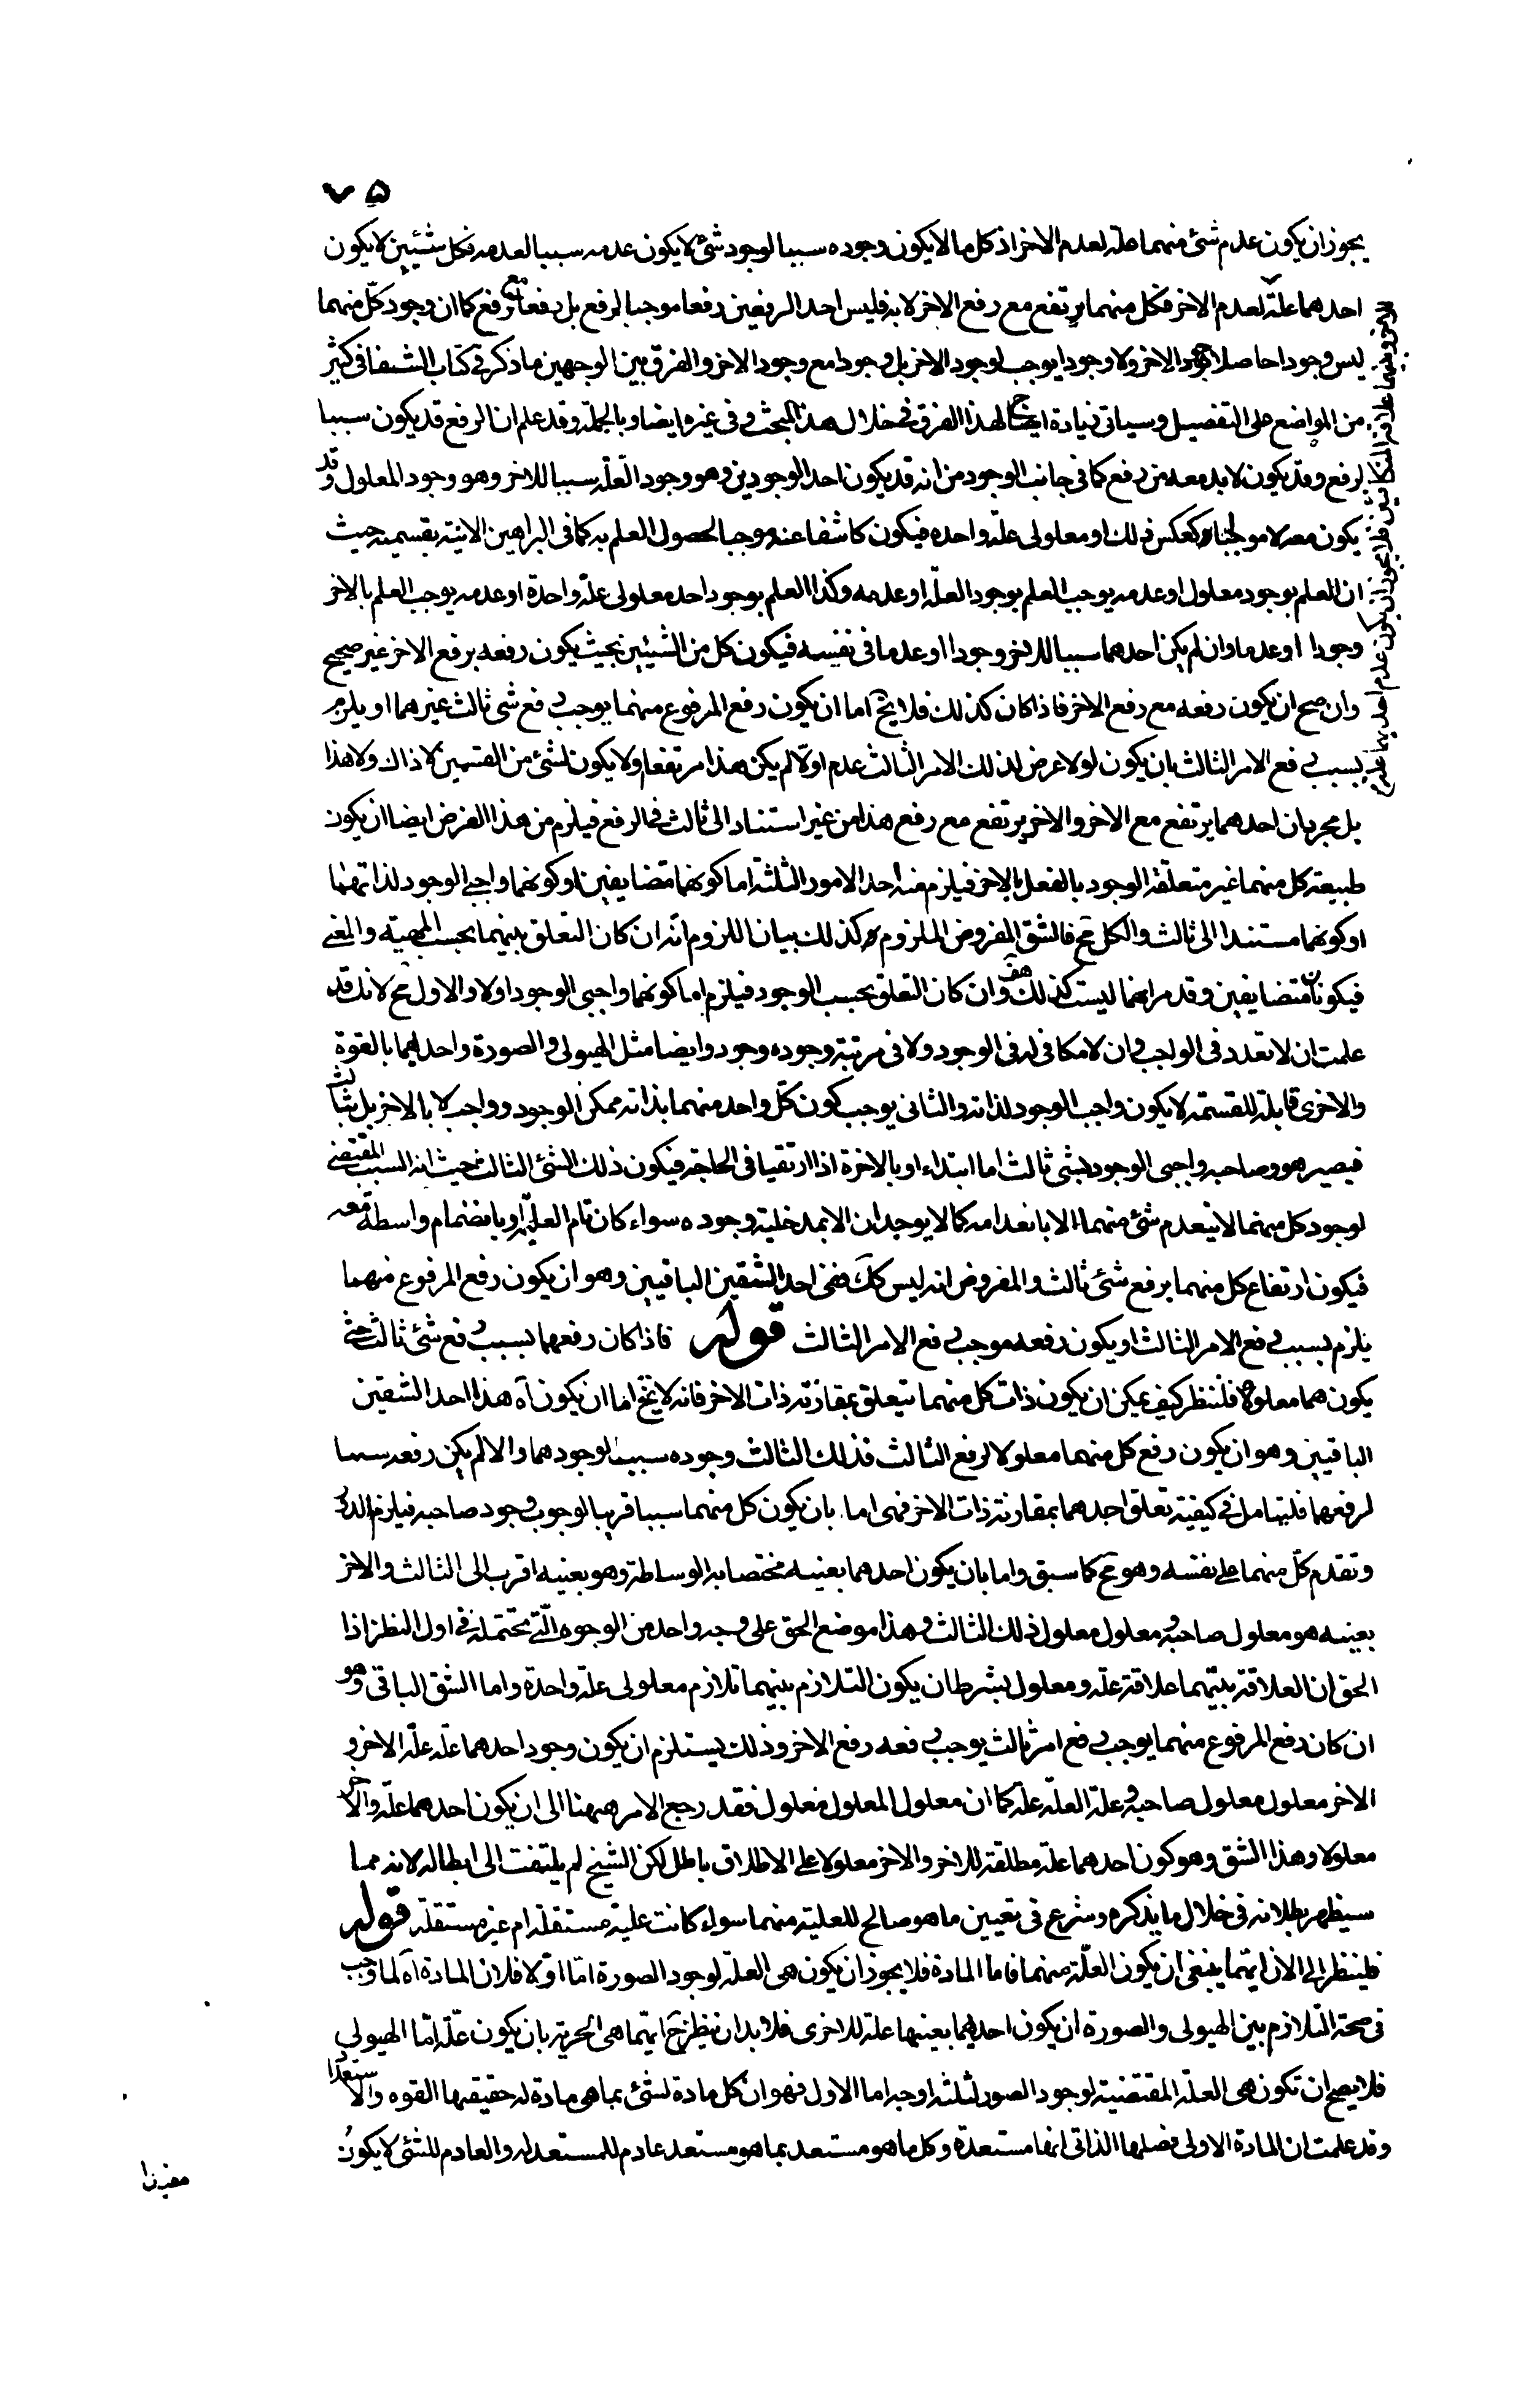 ٧٥
يجوز ان يكون عدم شئ منهما علة لعدم الاخر اذ كل ما لا يكون وجوده سببا لوجود شئ لا يكون عدمه سببا لعدمه فكل شيئين لا يكون
احدهما علة لعدم الاخر فكل منهما يرتفع مع رفع الاخر لا به فليس احد الرفعين رفعا موجبا لرفع بل رفعا مع رفع كما ان وجود كل منهما
ليس وجودا حاصلا بوجود الاخر ولا وجودا يوجب لوجود الاخر بل وجودا مع وجود الاخر والفرق بين الوجهين ما ذكر في كتاب الشفا في كثير
من المواضع على التفصيل وسياتى زيادة ايضاح لهذا الفرق في خلال هذا المبحث وفى غيره ايضا وبالجملة وقد علم ان الرفع قد يكون سببا
لرفع وقد يكون لا بد معه من رفع كما فى جانب الوجود من انه قد يكون احد الوجودين وهو وجود العلة سببا للاخر وهو وجود المعلول وقد
يكون معه لا موجبا له كعكس ذلك او معلولى علة واحده فيكون كاشفا عنه وموجبا لحصول العلم به كما فى البراهين الانية بقسميه حيث
ان العلم بوجود معلول او عدمه يوجب العلم بوجود العلة او عدمه وكذا العلم بوجود احد معلولى علة واحدة او عدمه يوجب العلم بالاخر
وجودا او عدما وان لم يكن احدهما سببا للاخر وجودا او عدما فى نفسه فيكون كل من الشيئين بحيث يكون رفعه برفع الاخر غير صحيح
وان صح ان يكون رفعه مع رفع الاخر فاذا كان كذلك فلا يخ اما ان يكون رفع المرفوع منهما يوجب رفع شئ ثالث غيرهما او يلزم
بسبب رفع الامر الثالث بان يكون لولا عرض لذلك الامر الثالث عدم اولا لم يكن هذا مرتفعا ولا يكون لشئ من القسمين لا ذاك ولا هذا
بل مجرد ان احدهما يرتفع مع الاخر والاخر يرتفع مع رفع هذا من غير استناد الى ثالث فى الرفع فيلزم من هذا الفرض ايضا ان يكون
طبيعة كل منهما غير متعلقة الوجود بالفعل بالاخر فيلزم منه احد الامور الثلثة اما كونهما متضايفين او كونهما واجبي الوجود لذاتهما
او كونهما مستندا الى ثالث والكل مح فالشق المفروض الملزوم له كذلك بيان اللزوم انه ان كان التعلق بينهما بحسب المهية والمعنى
فيكونان متضايفين وقد مر انهما ليست كذلك هف وان كان التعلق بحسب الوجود فيلزم اما كونهما واجبى الوجود اولا والاول مح لانك قد
علمت ان لا تعدد فى الواجب وان لا مكافى له فى الوجود ولا فى مرتبة وجوده وجود وايضا مثل الهيولى والصورة واحدهما بالقوة
والاخرى قابلة للقسمة لا يكون واجب الوجود لذاته والثانى يوجب كون كل واحد منهما بذاته ممكن الوجود وواجب لا بالاخر بل بثالث
فيصير هو وصاحبه واجبى الوجود بشئ ثالث اما ابتداء او بالاخرة اذا ارتقيا فى الحاجة فيكون ذلك الشئ الثالث حيث انه السبب المقتضى
لوجود كل منهما لا ينعدم شئ منهما الا بانعدامه كما لا يوجد ان الا بمدخلية وجوده سواء كان تام العلية او بانضمام واسطة معه
فيكون ارتفاع كل منهما برفع شئ ثالث والمفروض انه ليس كك فبقى احد الشقين الباقيين وهو ان يكون رفع المرفوع منهما
يلزم بسبب رفع الامر الثالث او يكون رفعه موجب رفع الامر الثالث قوله فاذا كان رفعهما بسبب رفع شئ ثالث حتى
يكون هما معلولاه فلننظر كيف يمكن ان يكون ذات كل منهما يتعلق بمقارنة ذات الاخر فانه لا يخ اما ان يكون آه هذا احد الشقين
الباقيين وهو ان يكون رفع كل منهما معلولا لرفع الثالث فذلك الثالث وجوده سبب لوجودهما والا لم يكن رفعه سببا
لرفعهما فليتامل في كيفية تعلق احدهما بمقارنة ذات الاخر فهى اما بان يكون كل منهما سببا قريبا لوجوب وجود صاحبه فيلزم الدور
وتقدم كل منهما على نفسه وهو مح كما سبق واما بان يكون احدهما بعينه مختصا بالوساطة وهو بعينه اقرب الى الثالث والاخر
بعينه هو معلول صاحبه ومعلول معلول لذلك الثالث وهذا موضع الحق على وجه واحد من الوجوه التى تحتمله فى اول النظر اذا
الحق ان العلاقة بينهما علاقة علة ومعلول بشرط ان يكون التلازم بينهما تلازم معلولى علة واحدة واما الشق الباقى وهو
ان كان رفع المرفوع منهما يوجب رفع امر ثالث يوجب رفعه رفع الاخر وذلك يستلزم ان يكون وجود احدهما علة علة الاخر و
الاخر معلول معلول صاحبه وعلة العلة علة كما ان معلول المعلول معلول فقد رجع الامر ههنا الى ان يكون احدهما علة والاخر
معلولا وهذا الشق وهو كون احدهما علة مطلقة للاخر والاخر معلولا على الاطلاق باطل لكن الشيخ لم يلتفت الى ابطاله لانه مما
سيظهر بطلانه فى خلال ما يذكره وشرع فى تعيين ما هو صالح للعلية منهما سواء كانت علية مستقلة ام غير مستقلة قوله
فلينظر الى الان ايتهما ينبغى ان يكون العلة منهما فاما المادة فلا يجوز ان يكون هى العلة لوجود الصورة اما اولا فلان المادة آه لما وجب
فى صحة التلازم بين الهيولى والصورة ان يكون احديهما بعينها علة للاخرى فلا بد ان ينظر ح ايتهما هى الحرية بان يكون علة اما الهيولى
فلا يصح ان تكون هى العلة المقتضية لوجود الصور لثلثة اوجه اما الاول فهو ان كل مادة لشئ بما هى مادة له حقيقتها القوه والاستعداد
وقد علمت ان المادة الاولى فصلها الذاتى انها مستعدة وكل ما هو مستعد بما هو مستعد عادم للمستعد له والعادم للشئ لا يكون
الاخر وبينهما علاقة التكافى فلا يجوز ان يكون عدم احدهما